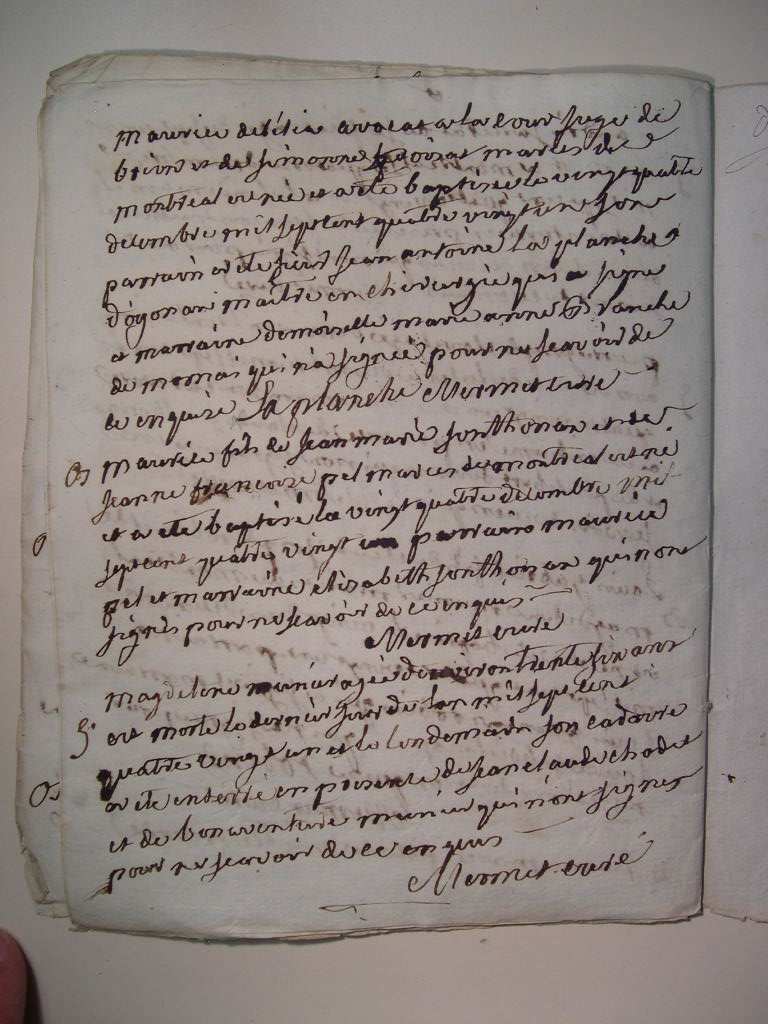 maurice delilia avocat a la cour juge de
brion et de simonne maries de
montreal est née et a ete baptisée le vingt quatre
decembre mil sept cent quatre vingt un son
parrain a ete sieur jean antoine la planche
d'ogonax maître en chirurgie qui a signe
et marraine demoiselle marie anne branche
de mornai qui n'a signeé pour ne scavoir de
ce enquise La planche Mermet curé
maurice fils de jean marie jonthonax et de
jeanne francoise pel maries de montreal est ne
et a ete baptisé le vingt quatre decembre mil
sept cent quatre vingt un parrain maurice
pel et marraine elisabeth jonthonax qui n'ont
signés pour ne scavoir de ce enquis
Mermet curé
magdelene munier agée d'environ trente six ans
est morte le dernier jour de lan mil sept cent
quatre vingt un et le lendemain son cadavre
a ete enterré en presence de jean claude chodet
et de bonaventure munier qui n'ont signes
pour ne scavoir de ce enquis
Mermet curé